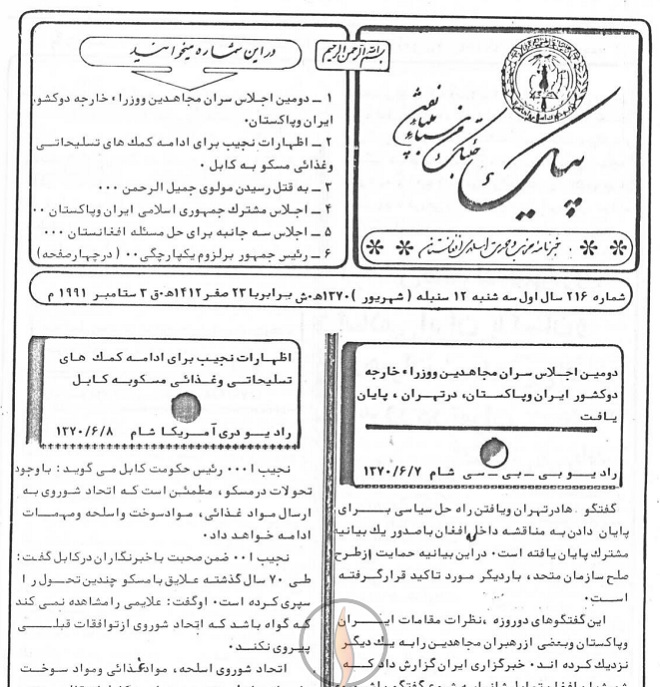 بسم الله الرحمن الرحیم
پیک
خبرنامه
در این شماره میخوانید
۱ ــ دومین اجلاس سران مجاهدین ووزراء خارجه دوکشور
ایران وپاکستان۰
۲ ــ اظهارات نجیب برای ادامه کمك های تسلیحاتــی
وغذائی مسکو به کابل ۰
۳ ــ به قتل رسیدن مولوی جمیل الرحمن ۰۰۰
۴ ــ اجلاس مشترك جمهوری اسلامی ایران وپاکستان ۰۰
۵ ــ اجلاس سه جانبه برای حل مسئله افغانستان ۰۰۰
۶ ــ رئیس جمهور برلزوم یکپارچگی۰۰ ( درچهارصفحه)
شماره ۲۱۶ سال اول سه شنبه ۱۲ سنبله ( شهریور )۱۳۷۰ه۰ش برابربا ۲۳ صفر ۱۴۱۲ه۰ق ۳ سپتامبر ۱۹۹۱ م
دومین اجلاس سران مجاهدین ووزراء خارجه
دوکشور ایران وپاکستان، درتهـران ، پایان
یـافت
رادیـو بی ــ بی ــ سی شام ۱۳۷۰/۶/۷
گفتگو هادرتهران ویافتن راه حل سیاسی بـــرای
پایان دادن به مناقشه داخل افغان باصدور یك بیانیه
مشترك پایان یافته است۰ دراین بیانیه حمایت ازطرح
صلح سازمان متحد، باردیگر مورد تاکید قرارگــرفته
اســت۰
این گفتگوهای دوروزه ،نظرات مقامات ایـــران
وپاکستان وبعضی ازرهبران مجاهدین رابه یك دیگر
نزدیك کرده اند۰ خبرگزاری ایران گزارش داد کــه
اظهارات نجیب برای ادامه کمك های
تسلیحاتی وغذائی مسکوبه کابل
رادیــو دری آمـریکا شام ۱۳۷۰/۶/۸
نجیب ا۰۰۰ رئیس حکومت کابل می گوید : باوجود
تحولات درمسکو، مطمئن است که اتحاد شوروی به
ارسال مـواد غـذائی، مـوادسوخت واسلحه ومهمـات
ادامـه خـواهد داد۰
نجیب ا۰۰ ضمن صحبت باخبرنگاران درکابل گفت:
طـی ۷۰ سال گذشتـه عـلایق بامسکو چندین تحـول را
سپری کـرده است۰ اوگفت: علایمی رامشاهده نمی کند
کـه گواه باشد کـه اتحاد شوروی ازتوافقات قبلــی
پیـروی نکنــد۰
اتحاد شوروی اسلحه، موادغـذائی ومواد سـوخت